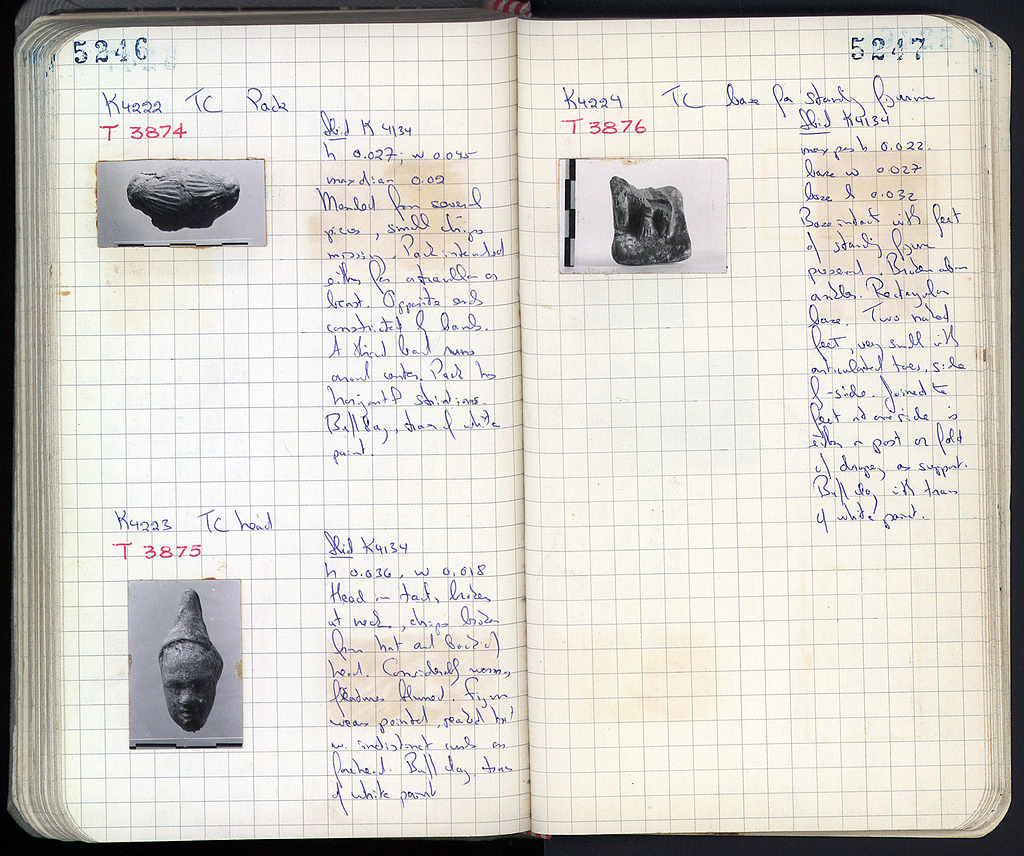 5246
K4222 TC Pack
T 3874
Ibid K 4134
h 0.027; w 0.045
max diam 0.02
Mended from several
pieces, small chips
missing. Pack intended
either for a traveller or
beast. Opposite ends
constricted by bands.
A third band runs
around center. Pack has
horizontal striations.
Buff clay, traces of white
paint.
K4223 TC head
T 3875
Ibid K4134
h 0.036, w 0.018
Head intact, broken
at neck, chips broken
from hat and back of
head. Considerably worn,
features blurred. Figure
wears pointed, peaked hat
w. indistinct curls on
forehead. Buff clay, traces
of white paint
5247
K4224 TC base for standing figurine
T 3876
Ibid K4134
max pres h 0.022.
base w 0.027
base l 0.032
Base intact with feet
of standing figure
present. Broken above
ankles. Rectangular
base. Two naked
feet, very small with
articulated toes, side
by-side. Joined to
feet at one side is
either a post or fold
of drapery as support.
Buff clay with traces
of white paint.